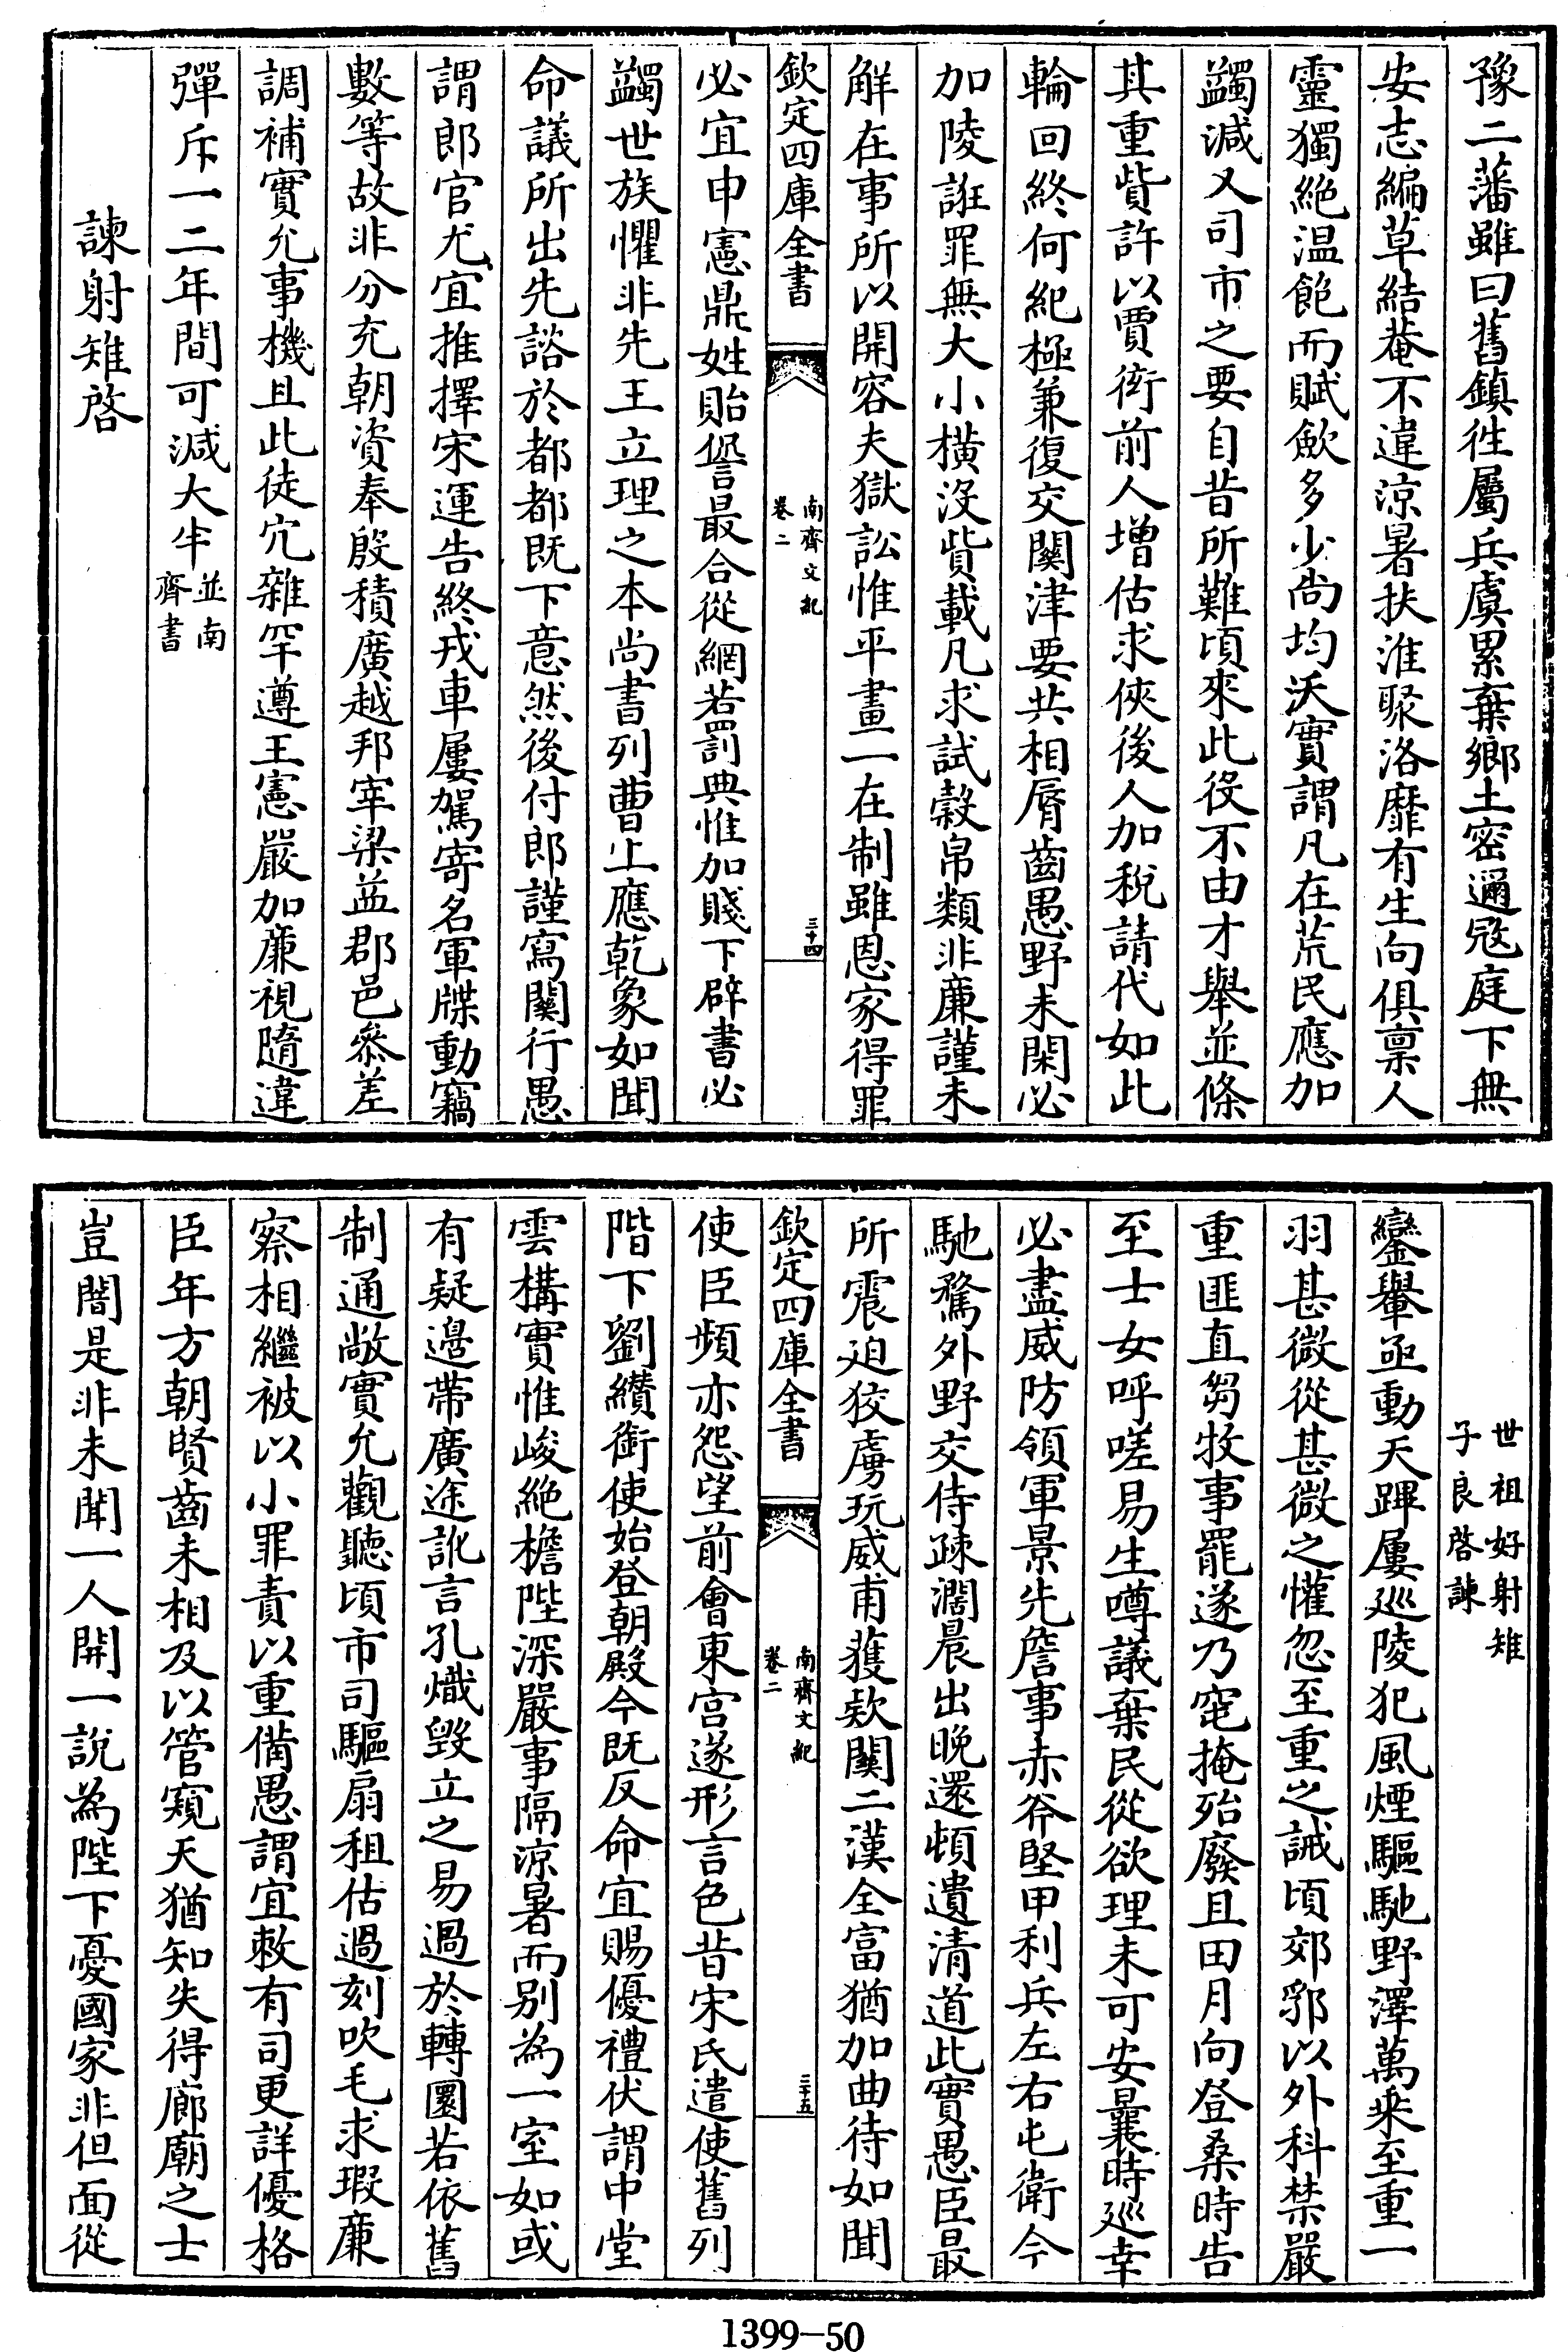 豫二藩雖曰舊鎮徃屬兵虞累棄鄉土密邇宼庭下無
安志編草結菴不違涼暑扶淮聚洛靡有生向俱稟人
靈獨絶温飽而賦歛多少尚均沃實謂凡在荒民應加
蠲減又司市之要自昔所難頃來此役不由才舉並條
其重貲許以賈衒前人增估求俠後人加稅請代如此
輪回終何紀極兼復交關津要共相脣齒愚野未閑必
加陵誑罪無大小橫沒貲載凡求試穀帛類非廉謹未
解在事所以開容夫獄訟惟平畫一在制雖恩家得罪
欽定四庫全書
南齊文紀
卷二
三十四
必宜申憲鼎姓貽諐最合從網若罰典惟加賤下辟書必
蠲世族懼非先王立理之本尚書列曹上應乾象如聞
命議所出先諮於都都既下意然後付郎謹寫關行愚
謂郎官尤宜推擇宋運告終戎車屢駕寄名軍牒動竊
數等故非分充朝資奉殷積廣越邦宰梁益郡邑叅差
調補實允事機且此徒冗雜罕遵王憲嚴加廉視隨違
彈斥一二年間可減大半
並南
齊書
諫射雉啓
世祖好射雉
子良啓諫
鑾轝亟動天蹕屢巡陵犯風煙驅馳野澤萬乘至重一
羽甚微從甚微之懽忽至重之誡頃郊郛以外科禁嚴
重匪直芻牧事罷遂乃窀掩殆廢且田月向登桑時告
至士女呼嗟易生噂議棄民從欲理未可安曩時巡幸
必盡威防領軍景先詹事赤斧堅甲利兵左右屯衛今
馳騖外野交侍疎濶晨出晚還頓遺清道此實愚臣最
所震迫狡虜玩威甫獲欵關二漢全富猶加曲待如聞
欽定四庫全書
南齊文紀
卷二
三十五
使臣頻亦怨望前會東宮遂形言色昔宋氏遣使舊列
階下劉纘銜使始登朝殿今既反命宜賜優禮伏謂中堂
雲構實惟峻絶檐陛深嚴事隔涼暑而别為一室如或
有疑邊帶廣途訛言孔熾毁立之易過於轉圜若依舊
制通敞實允觀聽頃市司驅扇租估過刻吹毛求瑕廉
察相繼被以小罪責以重備愚謂宜敕有司更詳優格
臣年方朝賢齒未相及以管窺天猶知失得廊廟之士
豈闇是非未聞一人開一說為陛下憂國家非但面從
1399—50